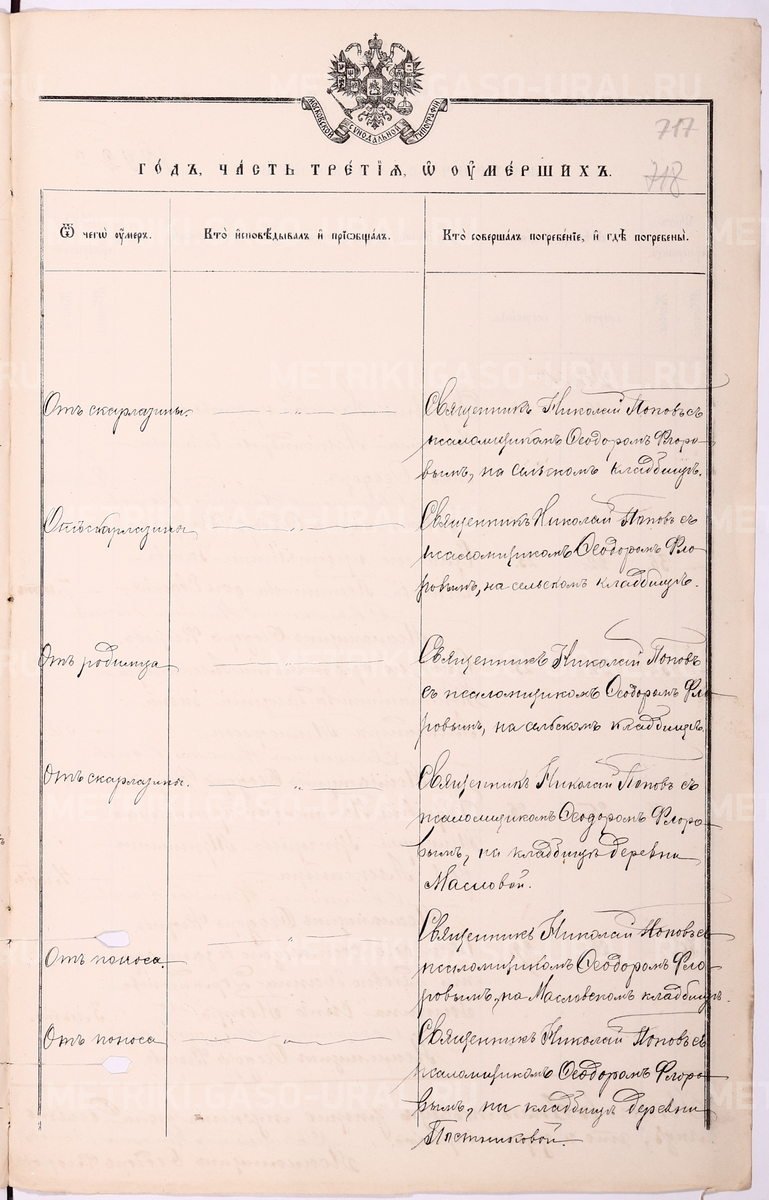 МОСКОВСКОЙ СѴНОДАЛЬНОЙ ТИПОГРАФІИ
717
718
ГО́ДЪ, ЧА́СТЬ ТРЕ́ТІЯ, Ѡ҆ ОУ҆МЕ́РШИХЪ.
Ѿ чегѡ̀ оу҆́меръ.
Кто̀ и҆сповѣ́дывалъ и҆ прїѡбща́лъ.
Кто̀ соверша́лъ погребе́нїе, и҆ гдѣ̀ погребены̀.
Отъ скарлатины.
Священникъ Николай Поповъ съ
псаломщикомъ Ѳеодоромъ Флоро-
вымъ, на сельскомъ кладбищѣ.
Отъ скарлатины
Священникъ Николай Поповъ съ
псаломщикомъ Ѳеодоромъ Фло-
ровымъ, на сельскомъ кладбищѣ.
Отъ родимца
Священникъ Николай Поповъ
съ псаломщикомъ Ѳеодоромъ Фло-
ровымъ, на сельскомъ кладбищѣ.
Отъ скарлатины.
Священникъ Николай Поповъ съ
псаломщикомъ Ѳеодоромъ Флоро-
вымъ, на кладбищѣ деревни
Масловой.
Отъ поноса.
Священникъ Николай Поповъ съ
псаломщикомъ Ѳеодоромъ Фло-
ровымъ, на Масловскомъ кладбищѣ.
Отъ поноса
Священникъ Николай Поповъ съ
псаломщикомъ Ѳеодоромъ Флоро-
вымъ, на кладбищѣ деревни
Постниковой.
METRIKI.GASO-URAL.RU